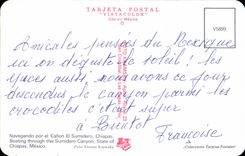 TARJETA POSTAL
"VISTACOLOR"
Hecho en México
V5899
Amicales pensées du Mexique
ici on déguste le soleil ! les
glaces aussi, nous avons ce jour
descendus le canyon parmi les
crocodiles c'était super
à Bientôt
Françoise
Navegando por el Cañon El Sumidero, Chiapas.
Boating through the Sumidero Canyon, State of
Chiapas, Mexico.